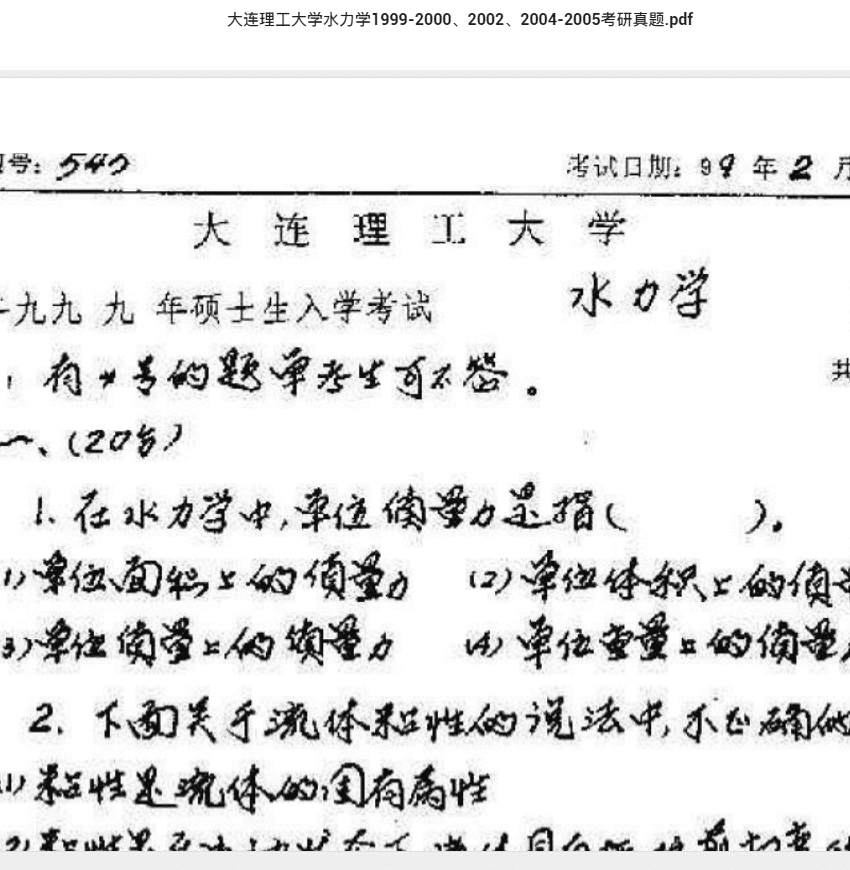 大连理工大学水力学1999-2000、2002、2004-2005考研真题.pdf
号: 545
考试日期: 99 年 2 月
大 连 理 工 大 学
九九 九 年硕士生入学考试 水力学
有 * 号的题单考生可不答。
共
一、(20分)
1. 在水力学中, 单位质量力是指( )。
(1) 单位面积上的质量力 (2) 单位体积上的质量
(3) 单位质量上的质量力 (4) 单位重量上的质量力
2. 下面关于流体粘性的说法中, 不正确的
(1) 粘性是流体的固有属性
(2) 粘性是